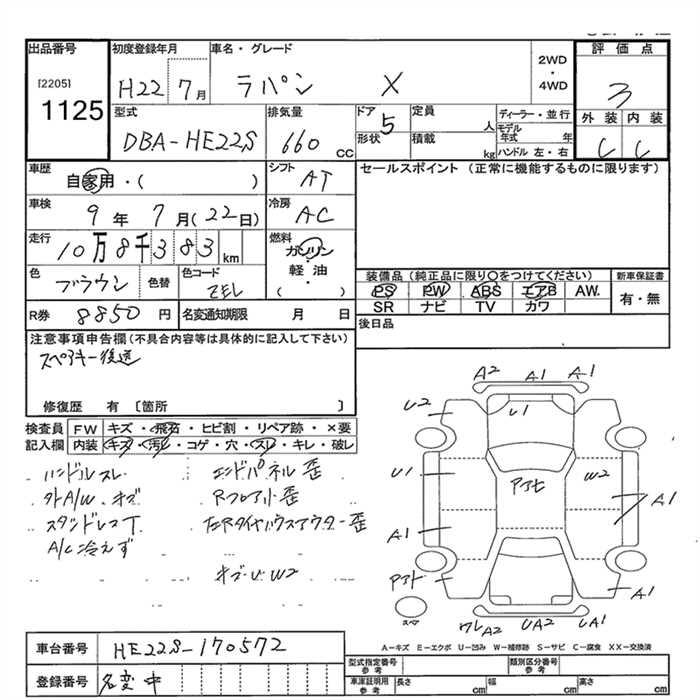 出品番号 初度登録年月 車名・グレード 2WD・4WD 評価点
[2205]
1125
H22 7月 ラパン X 3
型式 排気量 ドア 定員 人 ディーラー・並行 外装 内装
DBA-HE22S 660cc 5 形状 積載 kg モデル年式 年 ハンドル 左・右 C C
車歴 自家用・( ) シフト AT セールスポイント (正常に機能するものに限ります)
車検 9年7月(22日) 冷房 AC
走行 10万8千383km 燃料 ガソリン 軽油 ( )
色 ブラウン 色替 色コード ZEL
装備品(純正品に限り○をつけてください) 新車保証書
PS PW ABS エアB AW. 有・無
SR ナビ TV カワ
R券 8850円 名変通知期限 月 日 後日品
注意事項申告欄(不具合内容等は具体的に記入して下さい)
スペアキー後送
修復歴 有 〔箇所 〕
検査員記入欄 FW キズ・飛石・ヒビ割・リペア跡・×要
内装 キズ・汚レ・コゲ・穴・スレ・キレ・破レ
ハンドルスレ エンドパネル歪
外A/W、キズ Rフロア小歪
スタンドレスT 左Rタイヤハウスアウター歪
A/C冷えず
キズ・U W2
A2 A1 A1
U2 U1
U1 アアセ W2
A1 A1
アアト A1
スペア ワレ A2 UA2 UA1
A-キズ E-エクボ U-凹み W-補修跡 S-サビ C-腐食 XX-交換済
車台番号 HE22S-170572
登録番号 名変中
型式指定番号 参考 類別区分番号 参考
車庫証明用 参考 長さ cm 幅 cm 高さ cm